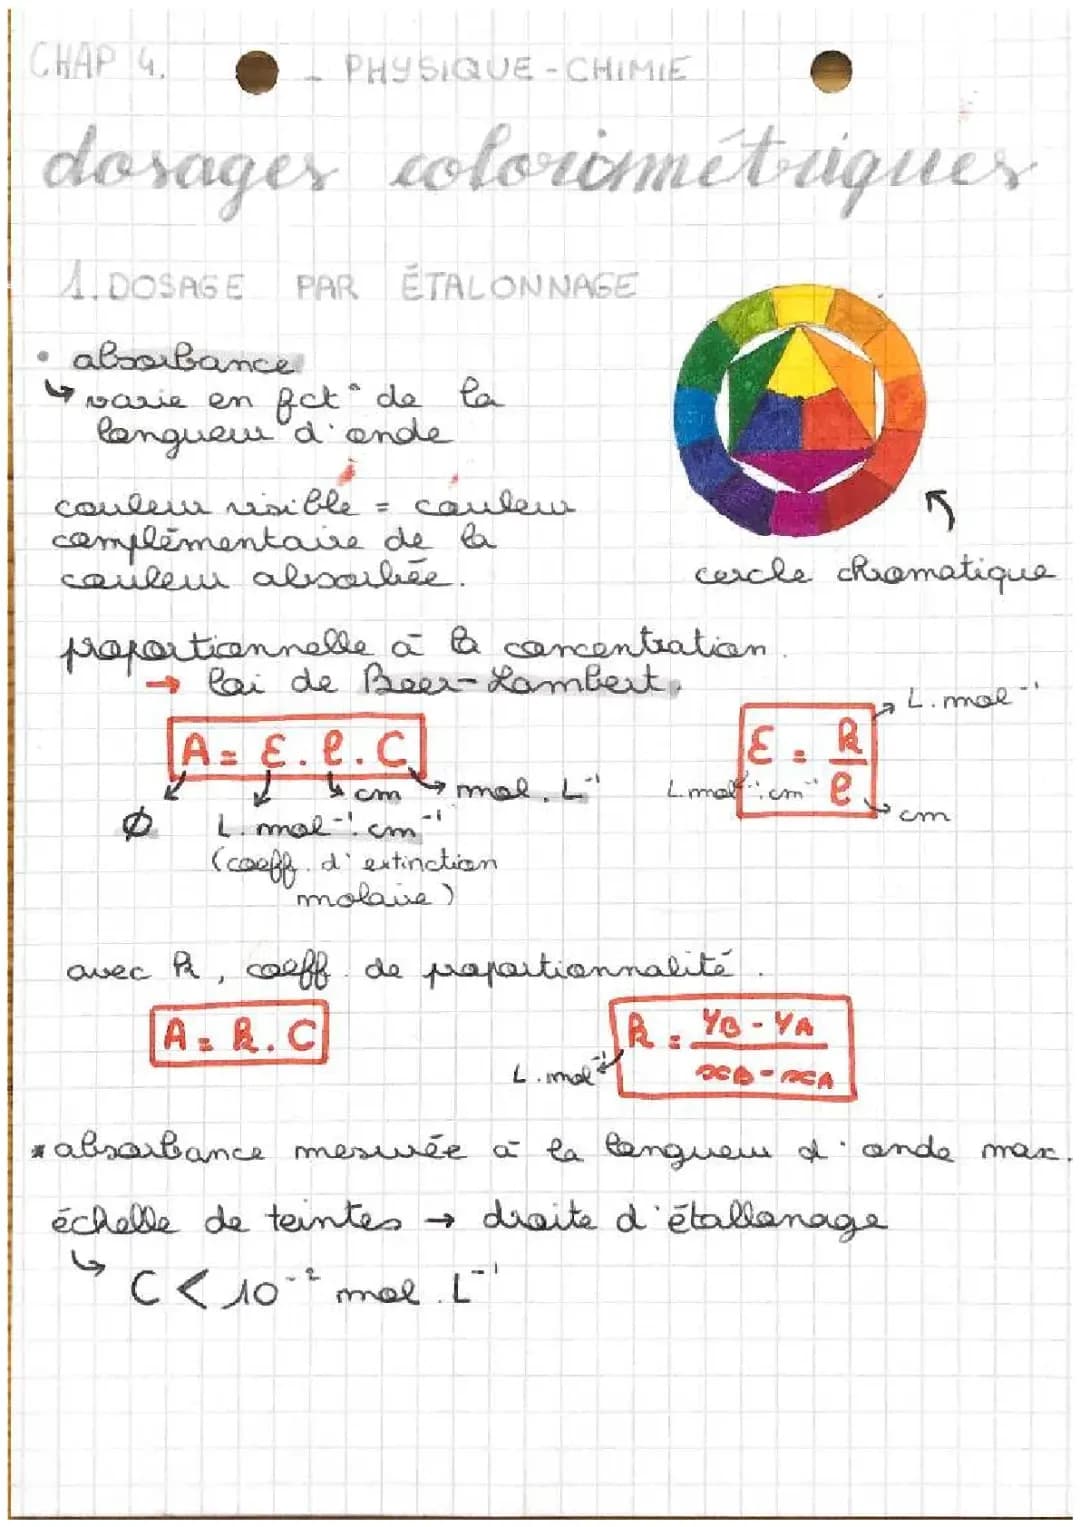 CHAP 4. - PHYSIQUE-CHIMIE
dosages colorimétriques
1. DOSAGE PAR ÉTALONNAGE
• absorbance
↳ varie en fct° de la
longueur d'onde
couleur visible = couleur
complémentaire de la
couleur absorbée.
cercle chromatique
proportionnelle à la concentration.
→ loi de Beer-Lambert.
A = ε . l . C
∅
L. mol⁻¹. cm⁻¹
cm
mol. L⁻¹
(coeff. d'extinction
molaire)
ε = k / l
L. mol⁻¹
L. mol⁻¹. cm⁻¹
cm
avec k, coeff. de proportionnalité.
A = k . C
k = yB - yA / xB - xA
L. mol⁻¹
* absorbance mesurée à la longueur d'onde max.
échelle de teintes → droite d'étallonage
↳ C < 10⁻² mol. L⁻¹